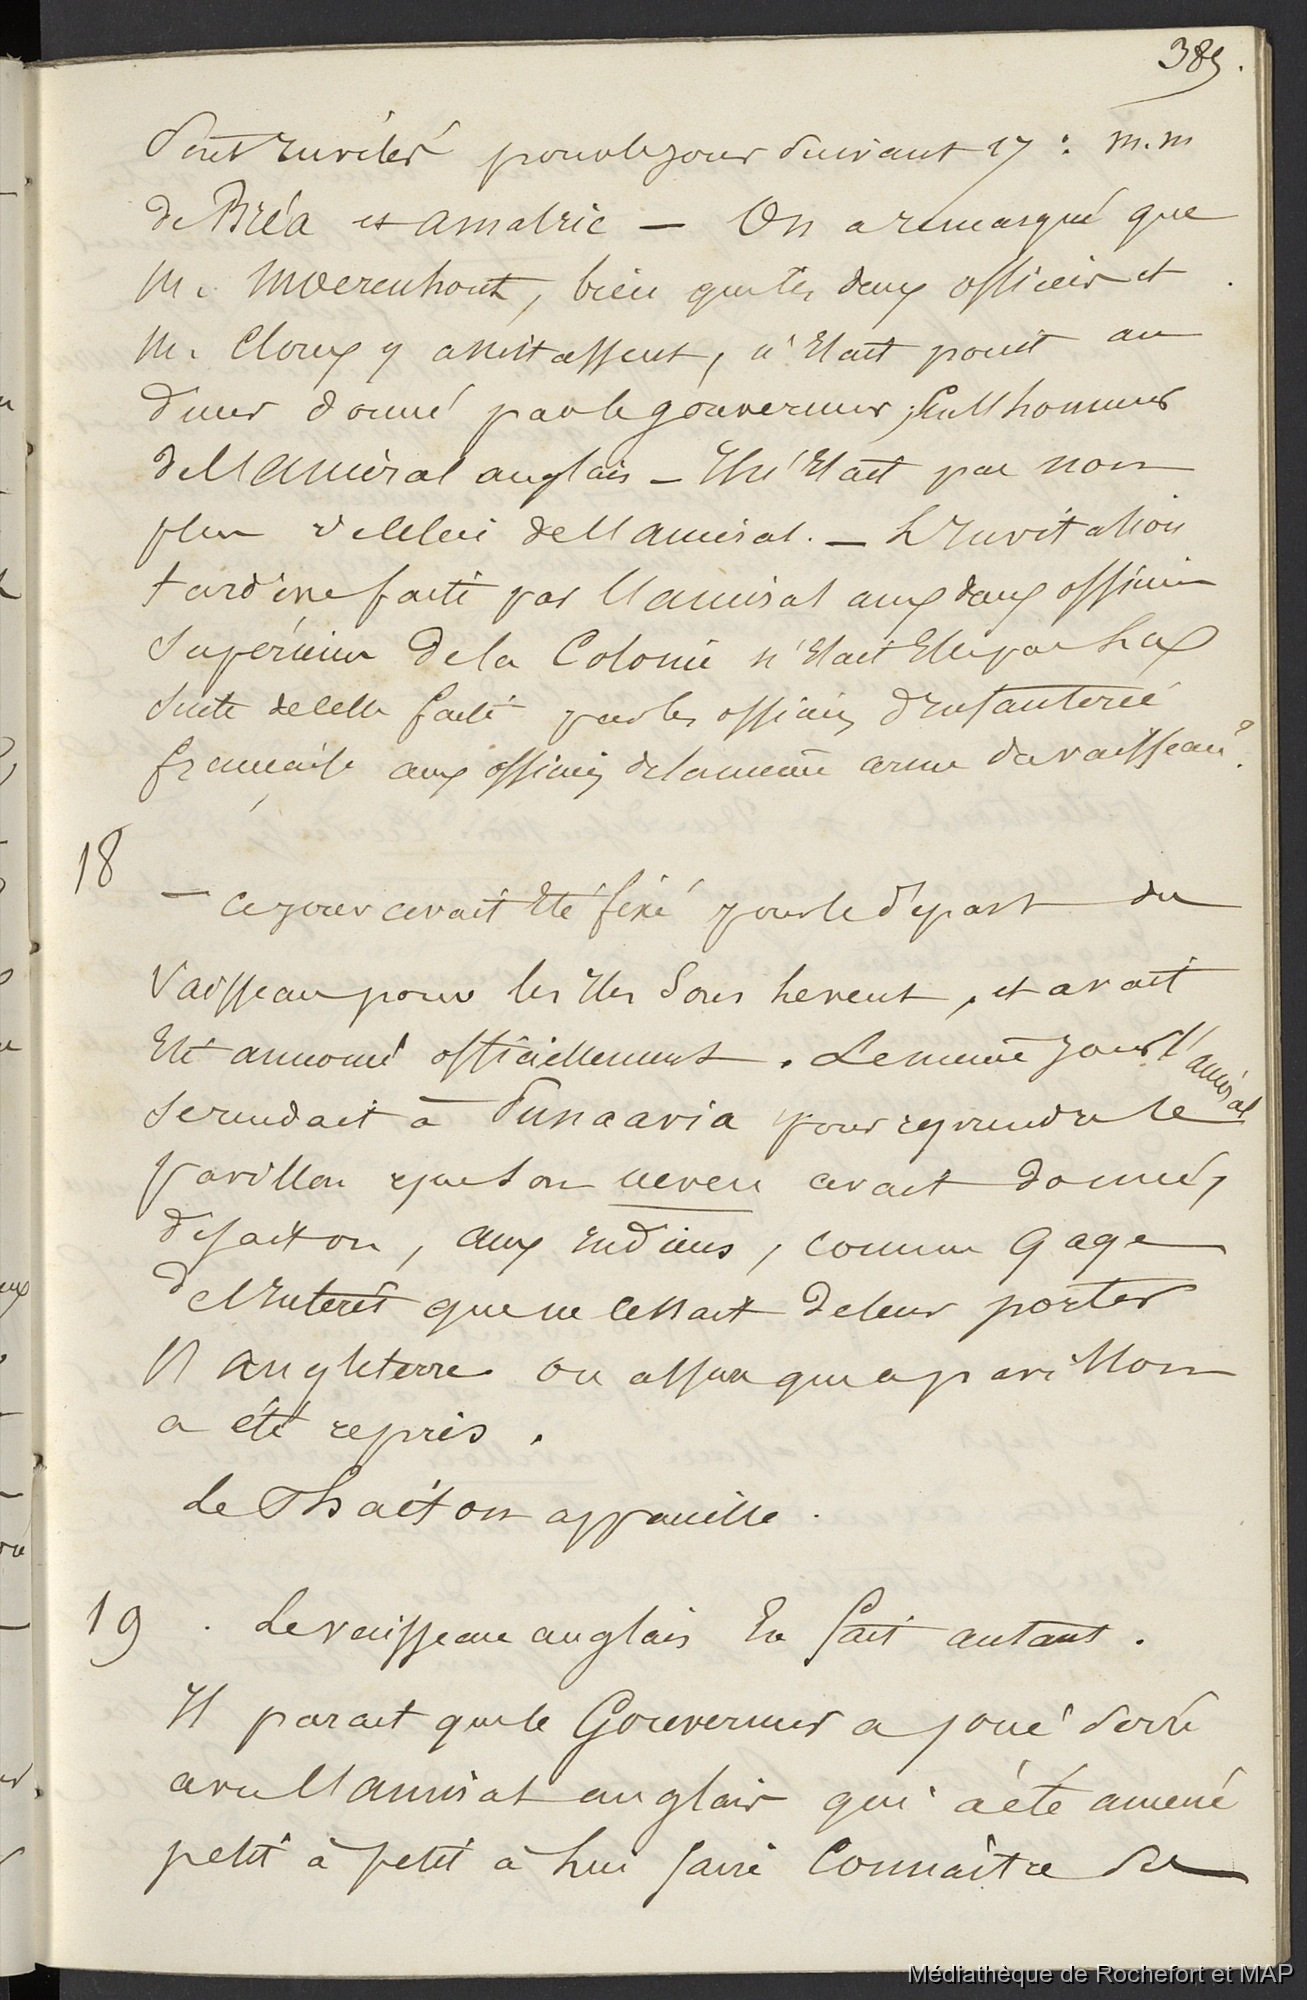 389.
Sont Invités pour le jour suivant 17 : m.m
de Bréa et amalric — On a remarqué que
M. Moerenhout, bien que les deux officiers et
M. Cloux y assistassent, n'Etait point au
diner donné par le gouverneur, En l'honneur
de l'amiral anglais — Il n'Etait pas non
plus à celui de l'amiral. — L'Invitation
tardive faite par l'amiral aux deux officiers
Supérieurs de la Colonie n'était Elle pas La
Suite de celle faite par les officiers d'Infanterie
française aux officiers de la même arme du vaisseau ?
18
— Ce jour avait Eté fixé pour le départ du
Vaisseau pour les Iles Sous le vent, et avait
Eté annoncé officiellement. Le même jour l'amiral
Se rendait à Punaavia pour reprendre le
pavillon que Son neveu avait donné,
disait on, aux Indiens, comme gage
de l'Interêt que ne cessait de leur porter
l'Angleterre on assure que ce pavillon
a été repris.
Le Phaëton appareille.
19. Le vaisseau anglais En fait autant.
Il parait que le Gouverneur a joué Serré
avec l'amiral anglais qui a été amené
petit à petit à Lui faire Connaître Ses
Médiathèque de Rochefort et MAP